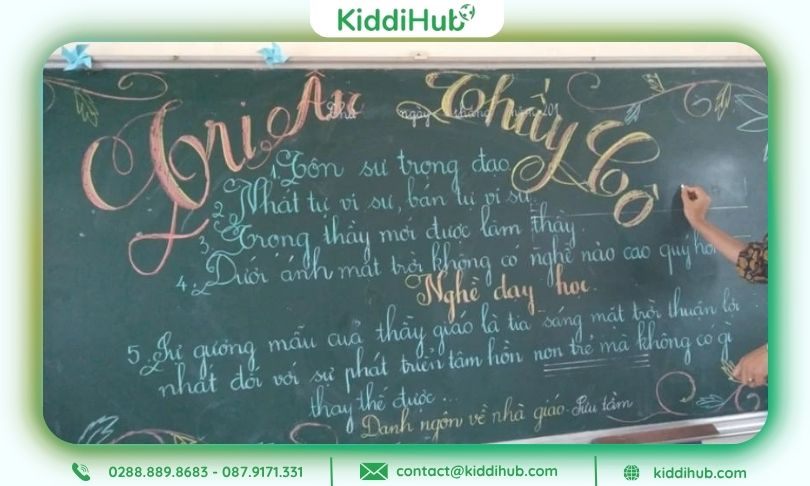 KiddiHub
Tri Ân Thầy Cô
Thứ ngày tháng năm 201
1. Tôn sư trọng đạo
2. Nhất tự vi sư, bán tự vi sư.
3. Trọng thầy mới được làm thầy.
4. Dưới ánh mặt trời không có nghề nào cao quý hơn
Nghề dạy học.
5. Sự gương mẫu của thầy giáo là tia sáng mặt trời thuần lợi
nhất đối với sự phát triển tâm hồn non trẻ mà không có gì
thay thế được ...
Danh ngôn về nhà giáo - Sưu tầm
0288.889.8683 - 087.9171.331
contact@kiddihub.com
kiddihub.com